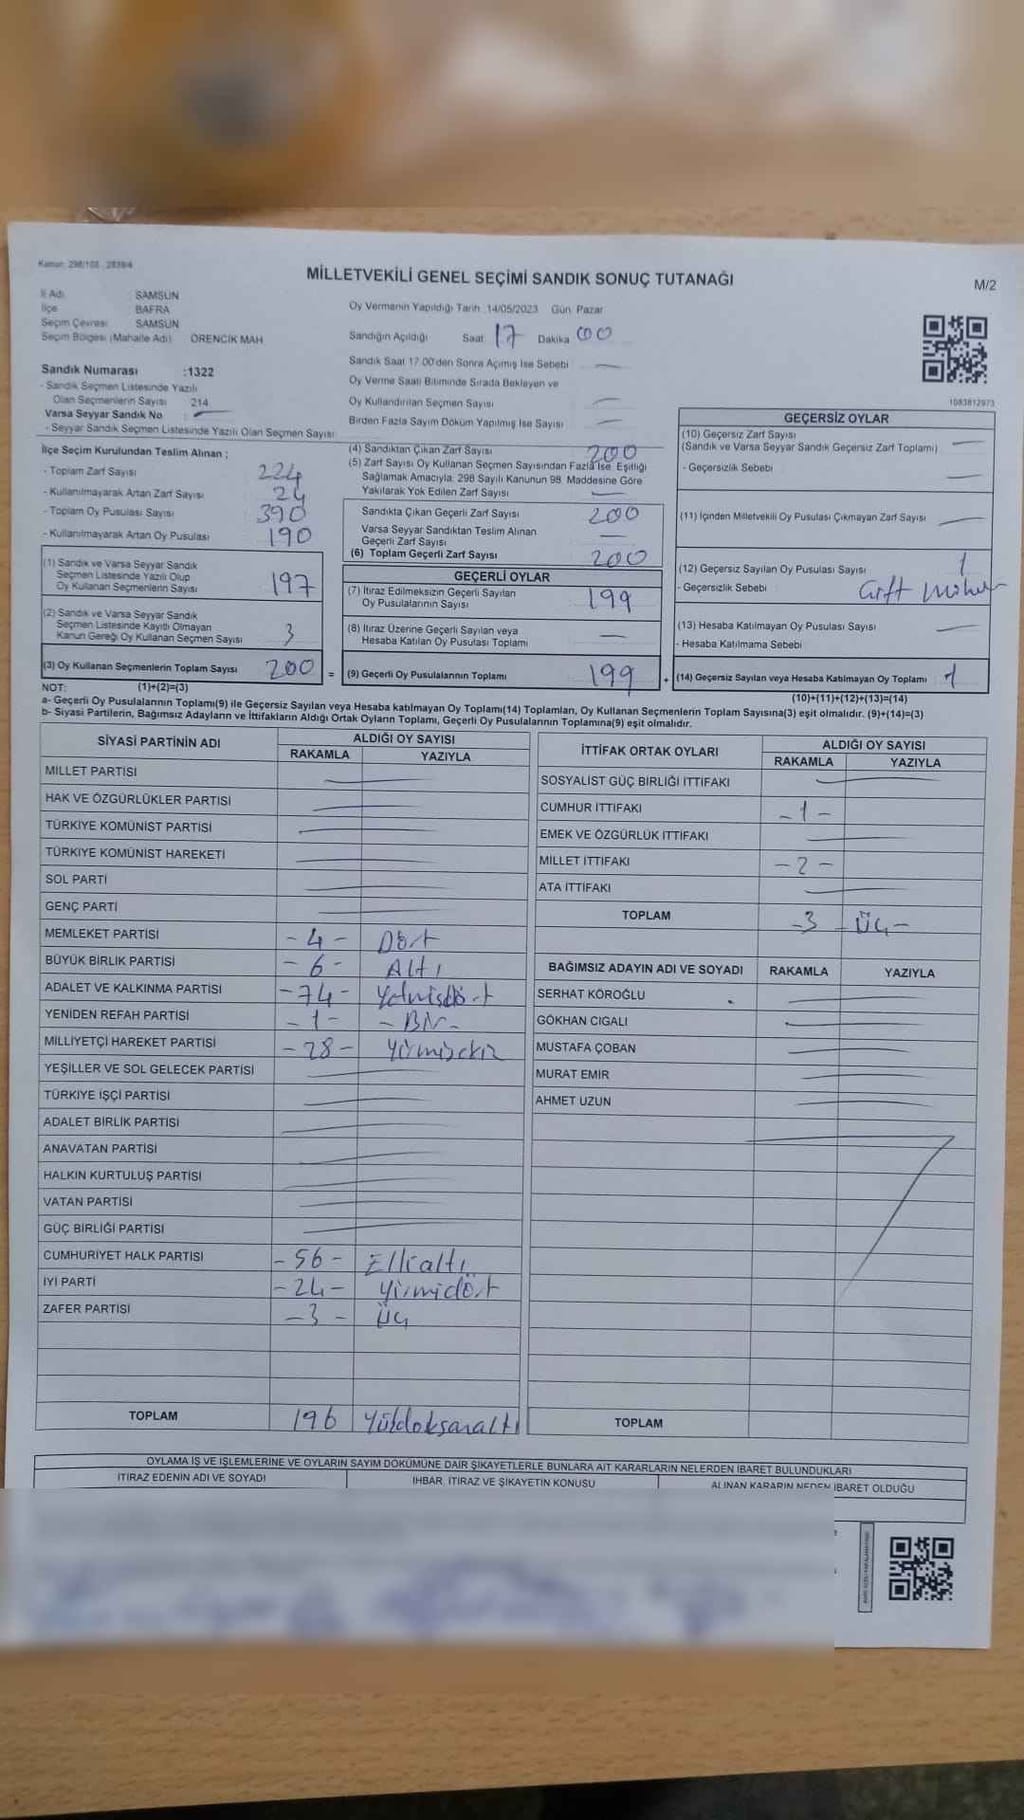 Kanun: 298/105 - 2839/4
MİLLETVEKİLİ GENEL SEÇİMİ SANDIK SONUÇ TUTANAĞI
M/2
İl Adı : SAMSUN
İlçe : BAFRA
Seçim Çevresi : SAMSUN
Seçim Bölgesi (Mahalle Adı) : ÖRENCİK MAH
Oy Vermenin Yapıldığı Tarih :14/05/2023 Gün: Pazar
Sandığın Açıldığı Saat: 17 Dakika 00
Sandık Saat 17.00'den Sonra Açılmış İse Sebebi : —
Oy Verme Saati Bitiminde Sırada Bekleyen ve
Oy Kullandırılan Seçmen Sayısı : —
Birden Fazla Sayım Döküm Yapılmış İse Sayısı : —
1083812973
Sandık Numarası :1322
- Sandık Seçmen Listesinde Yazılı
Olan Seçmenlerin Sayısı : 214
Varsa Seyyar Sandık No : —
- Seyyar Sandık Seçmen Listesinde Yazılı Olan Seçmen Sayısı:
İlçe Seçim Kurulundan Teslim Alınan ;
- Toplam Zarf Sayısı 224
- Kullanılmayarak Artan Zarf Sayısı 24
- Toplam Oy Pusulası Sayısı 390
- Kullanılmayarak Artan Oy Pusulası 190
(1) Sandık ve Varsa Seyyar Sandık
Seçmen Listesinde Yazılı Olup
Oy Kullanan Seçmenlerin Sayısı 197
(2) Sandık ve Varsa Seyyar Sandık
Seçmen Listesinde Kayıtlı Olmayan
Kanun Gereği Oy Kullanan Seçmen Sayısı 3
(3) Oy Kullanan Seçmenlerin Toplam Sayısı 200 =
(4) Sandıktan Çıkan Zarf Sayısı 200
(5) Zarf Sayısı Oy Kullanan Seçmen Sayısından Fazla İse, Eşitliği
Sağlamak Amacıyla, 298 Sayılı Kanunun 98. Maddesine Göre
Yakılarak Yok Edilen Zarf Sayısı —
Sandıkta Çıkan Geçerli Zarf Sayısı 200
Varsa Seyyar Sandıktan Teslim Alınan
Geçerli Zarf Sayısı —
(6) Toplam Geçerli Zarf Sayısı 200
GEÇERLİ OYLAR
(7) İtiraz Edilmeksizin Geçerli Sayılan
Oy Pusulalarının Sayısı 199
(8) İtiraz Üzerine Geçerli Sayılan veya
Hesaba Katılan Oy Pusulası Toplamı —
(9) Geçerli Oy Pusulalarının Toplamı 199 +
GEÇERSİZ OYLAR
(10) Geçersiz Zarf Sayısı —
(Sandık ve Varsa Seyyar Sandık Geçersiz Zarf Toplamı)
- Geçersizlik Sebebi —
(11) İçinden Milletvekili Oy Pusulası Çıkmayan Zarf Sayısı —
(12) Geçersiz Sayılan Oy Pusulası Sayısı 1
- Geçersizlik Sebebi Çift Mühür
(13) Hesaba Katılmayan Oy Pusulası Sayısı —
- Hesaba Katılmama Sebebi
(14) Geçersiz Sayılan veya Hesaba Katılmayan Oy Toplamı 1
NOT: (1)+(2)=(3) (10)+(11)+(12)+(13)=(14)
a- Geçerli Oy Pusulalarının Toplamı(9) ile Geçersiz Sayılan veya Hesaba katılmayan Oy Toplamı(14) Toplamları, Oy Kullanan Seçmenlerin Toplam Sayısına(3) eşit olmalıdır. (9)+(14)=(3)
b- Siyasi Partilerin, Bağımsız Adayların ve İttifakların Aldığı Ortak Oyların Toplamı, Geçerli Oy Pusulalarının Toplamına(9) eşit olmalıdır.
SİYASİ PARTİNİN ADI ALDIĞI OY SAYISI
RAKAMLA YAZIYLA
MİLLET PARTİSİ —
HAK VE ÖZGÜRLÜKLER PARTİSİ —
TÜRKİYE KOMÜNİST PARTİSİ —
TÜRKİYE KOMÜNİST HAREKETİ —
SOL PARTİ —
GENÇ PARTİ —
MEMLEKET PARTİSİ -4- Dört
BÜYÜK BİRLİK PARTİSİ -6- Altı
ADALET VE KALKINMA PARTİSİ -74- Yetmişdört
YENİDEN REFAH PARTİSİ -1- -Bir-
MİLLİYETÇİ HAREKET PARTİSİ -28- Yirmisekiz
YEŞİLLER VE SOL GELECEK PARTİSİ —
TÜRKİYE İŞÇİ PARTİSİ —
ADALET BİRLİK PARTİSİ —
ANAVATAN PARTİSİ —
HALKIN KURTULUŞ PARTİSİ —
VATAN PARTİSİ —
GÜÇ BİRLİĞİ PARTİSİ —
CUMHURİYET HALK PARTİSİ -56- Ellialtı
İYİ PARTİ -24- Yirmidört
ZAFER PARTİSİ -3- Üç
TOPLAM 196 Yüzdoksanaltı
İTTİFAK ORTAK OYLARI ALDIĞI OY SAYISI
RAKAMLA YAZIYLA
SOSYALİST GÜÇ BİRLİĞİ İTTİFAKI —
CUMHUR İTTİFAKI -1-
EMEK VE ÖZGÜRLÜK İTTİFAKI —
MİLLET İTTİFAKI -2-
ATA İTTİFAKI —
TOPLAM -3- Üç-
BAĞIMSIZ ADAYIN ADI VE SOYADI RAKAMLA YAZIYLA
SERHAT KÖROĞLU —
GÖKHAN CIGALI —
MUSTAFA ÇOBAN —
MURAT EMİR —
AHMET UZUN —
TOPLAM
OYLAMA İŞ VE İŞLEMLERİNE VE OYLARIN SAYIM DÖKÜMÜNE DAİR ŞİKAYETLERLE BUNLARA AİT KARARLARIN NELERDEN İBARET BULUNDUKLARI
İTİRAZ EDENİN ADI VE SOYADI İHBAR, İTİRAZ VE ŞİKAYETİN KONUSU ALINAN KARARIN NEDEN İBARET OLDUĞU